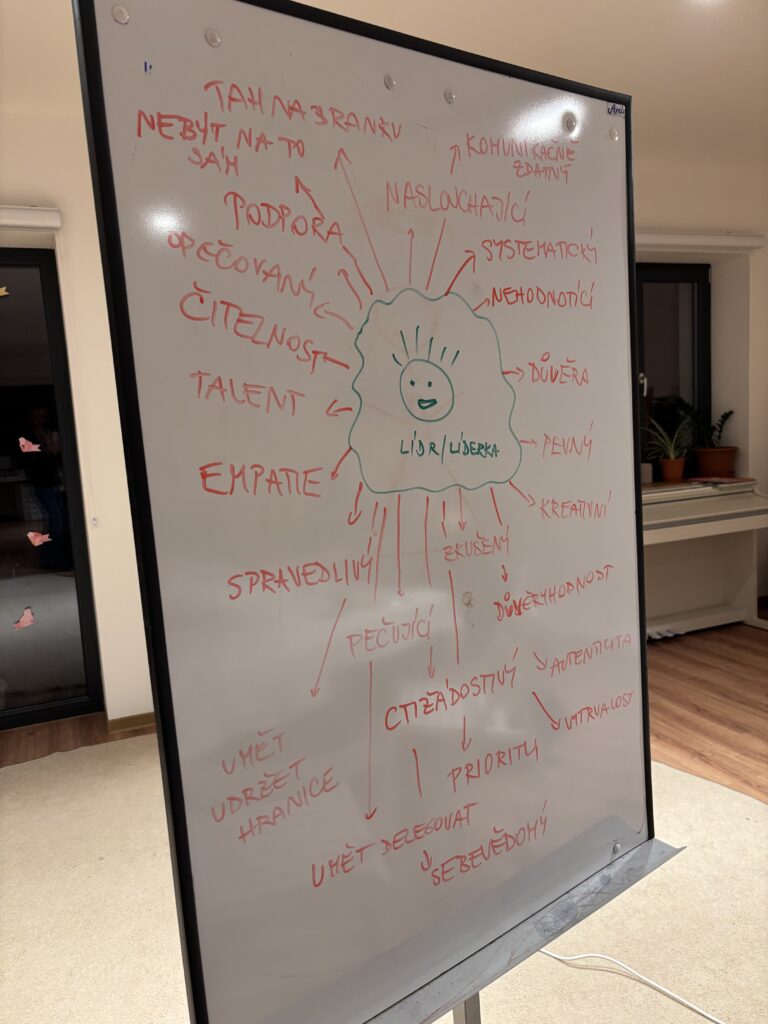 TAH NA BRANKU
NEBÝT NA TO
SÁM
KOMUNIKAČNĚ
ZDATNÝ
NASLOUCHAJÍCÍ
PODPORA
SYSTEMATICKÝ
OPEČOVANÝ
NEHODNOTÍCÍ
ČITELNOST
DŮVĚRA
TALENT
LÍDR/LÍDERKA
PEVNÝ
EMPATIE
KREATIVNÍ
ZKUŠENÝ
SPRAVEDLIVÝ
DŮVĚRYHODNOST
PEČUJÍCÍ
AUTENTICITA
CTIŽÁDOSTIVÝ
VYTRVALOST
UMĚT
UDRŽET
HRANICE
PRIORITY
UMĚT DELEGOVAT
SEBEVĚDOMÝ